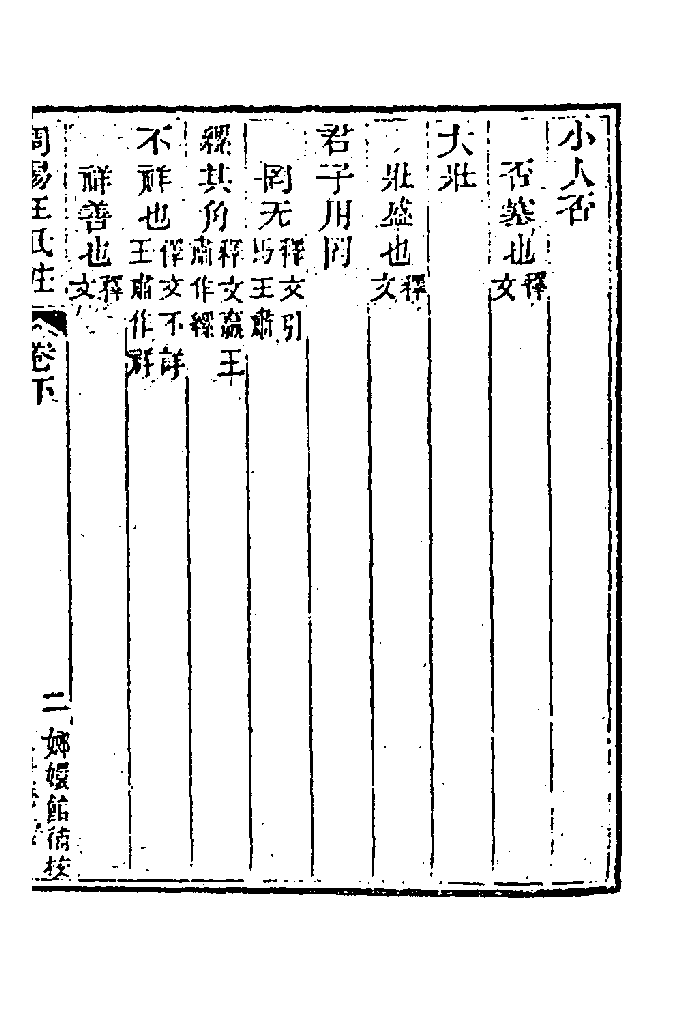 小人否
否塞也釋文
大壯
壯盛也釋文
君子用罔
罔无釋文引馬王肅
縲其角釋文羸王肅作縲
不祥也釋文不詳王肅作祥
祥善也釋文
周易王氏注 卷下 二 嫏嬛館補校